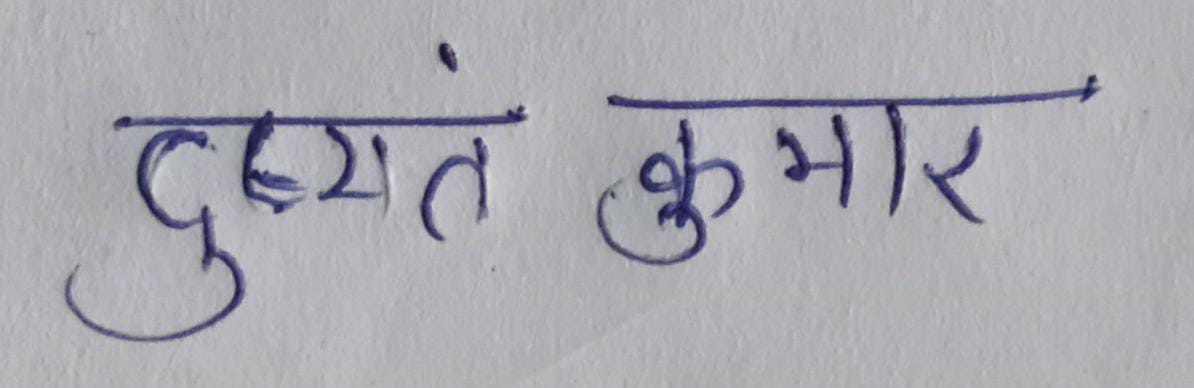 दुष्यतं कुमार